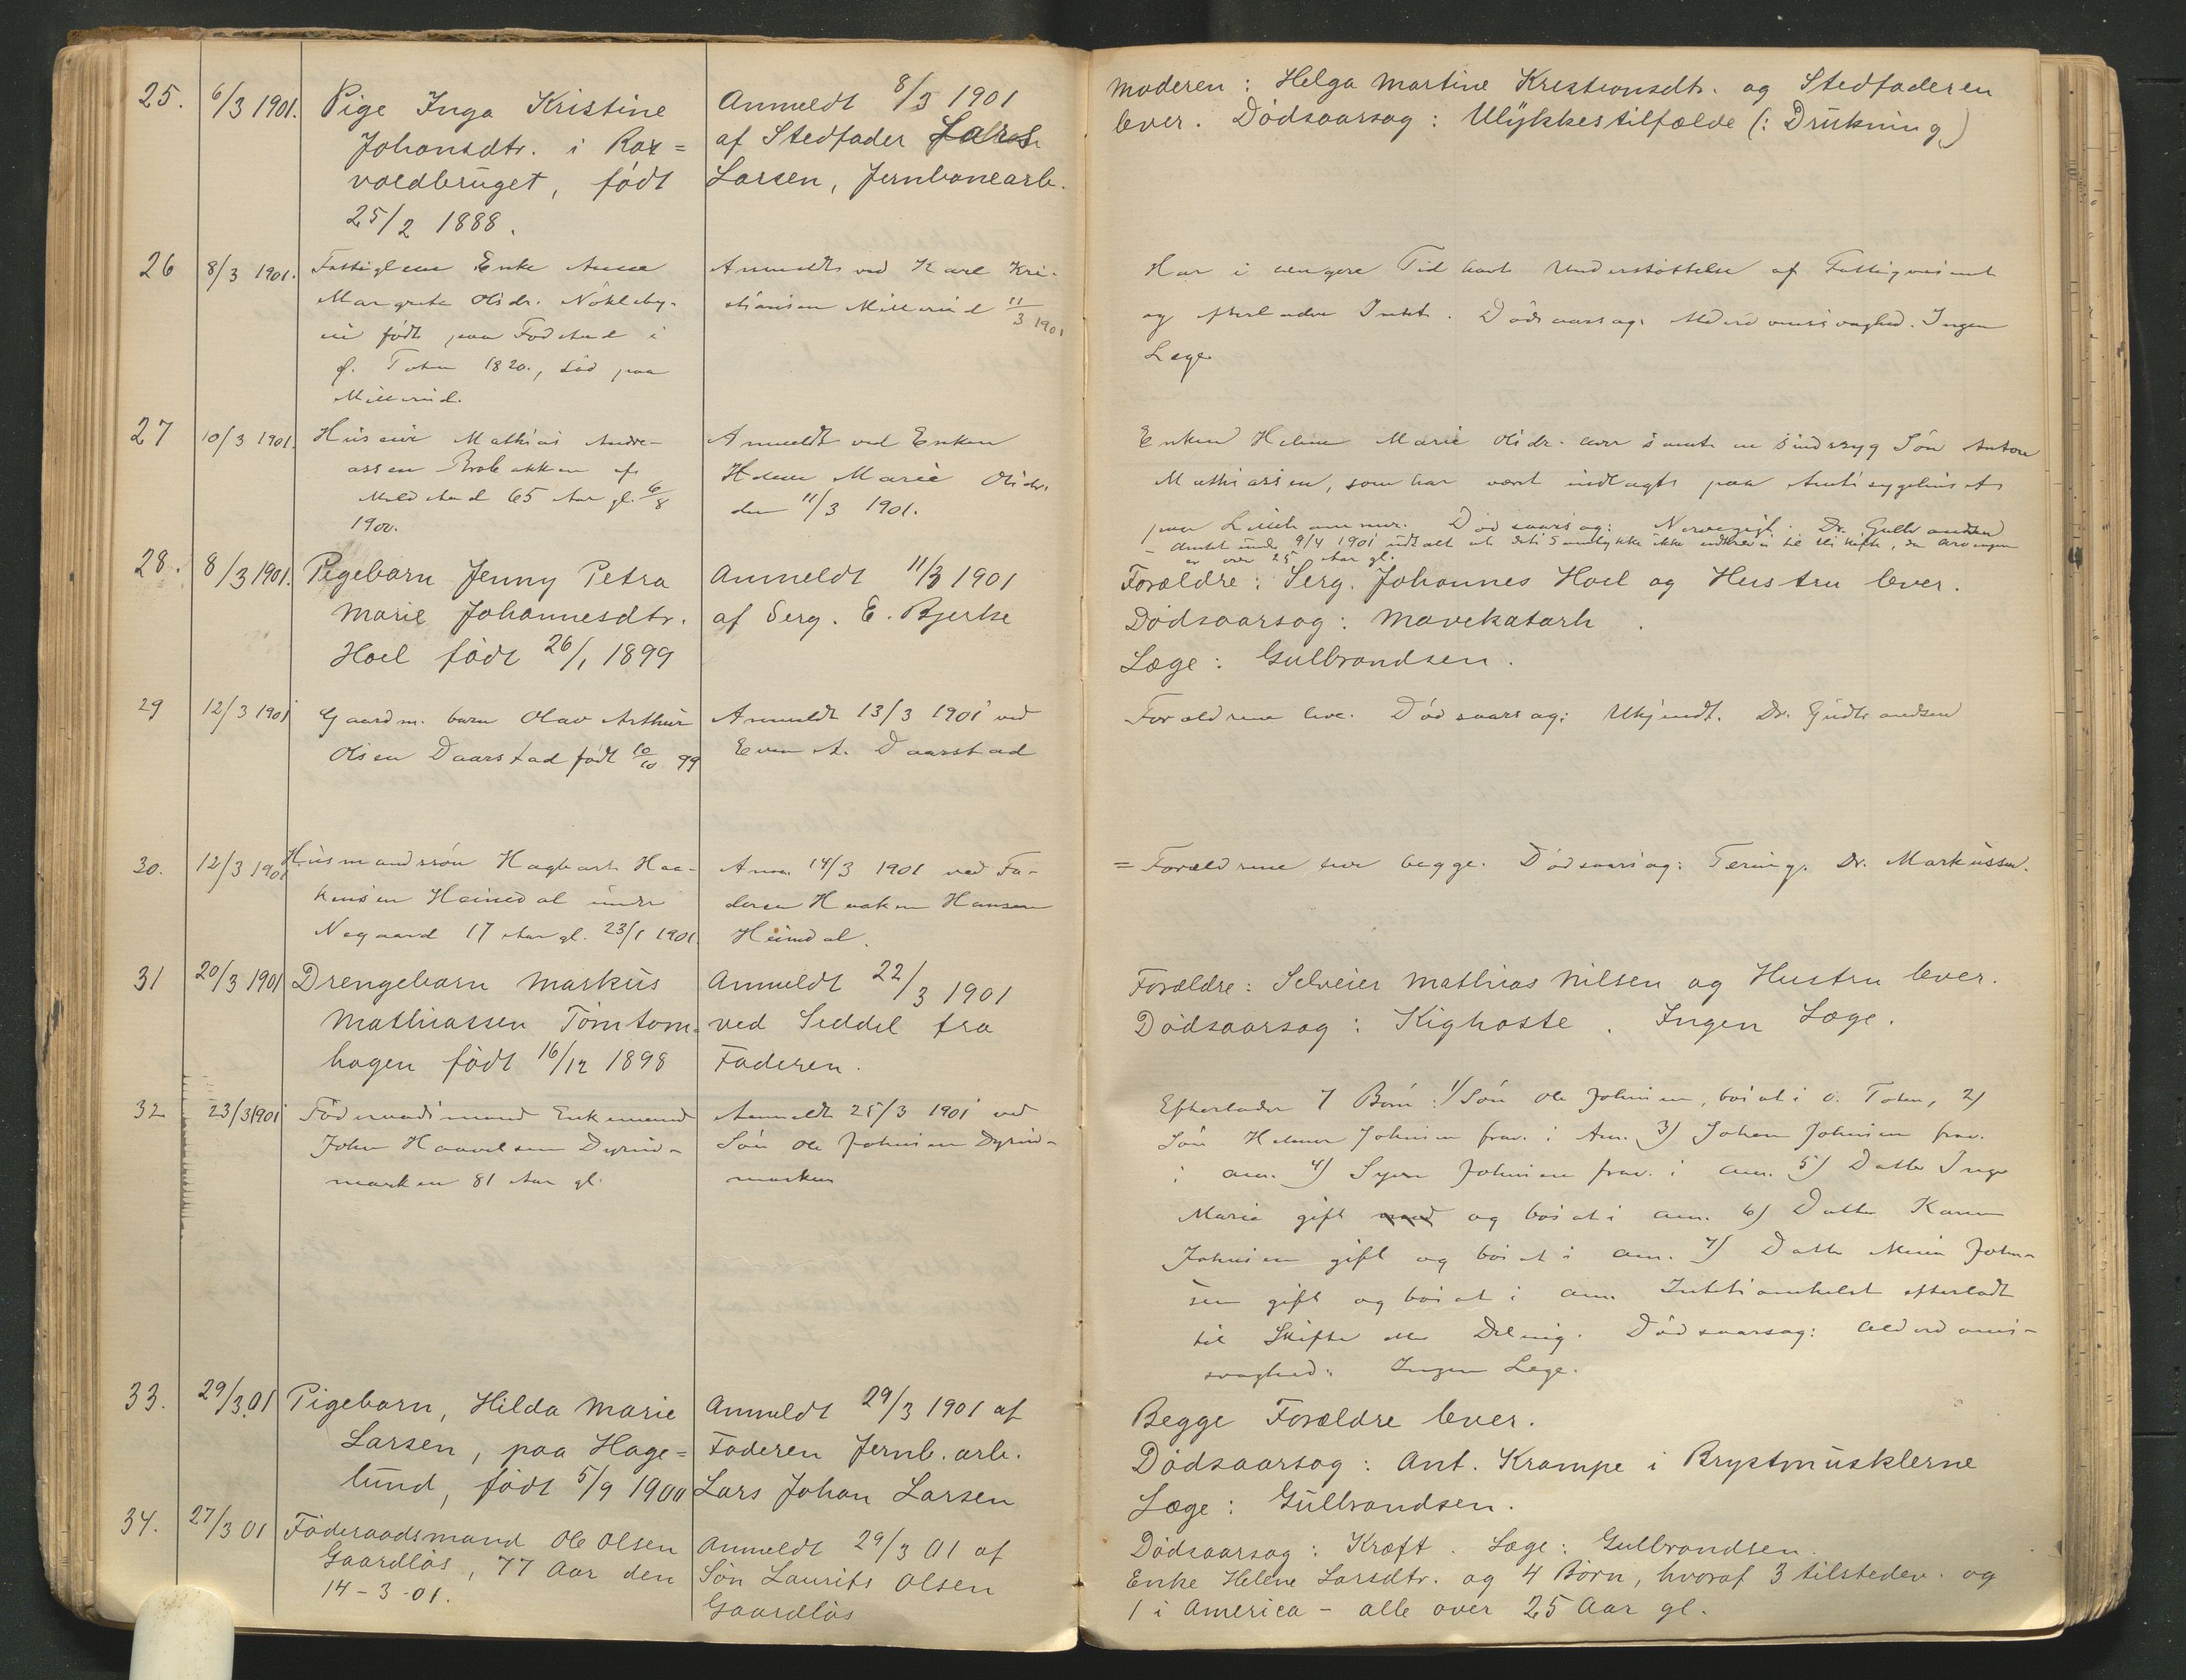 25.
6/3 1901.
Pige Inga Kristine
Johansdtr. i Rax=
voldbruget, født
25/2 1888.
Anmeldt 8/3 1901
af Stedfader Lars
Larsen, Jernbanearb.
Moderen: Helga Martine Kristiansdtr. og Stedfaderen
lever. Dødsaarsag: Ulykkestilfælde (: Drukning)
26
8/3 1901.
Fattiglem Enke Anne
Margrete Olsdr. Nøkleby-
ei født paa Fodstad i
Ø. Toten 1820., død paa
Millerud.
Anmeldt ved Karl Kri-
stiansen Millerud 11/3 1901
Har i længere Tid havt Understøttelse af Fattigvæsenet
og efterlader Intet. Dødsaarsag: Alderdomssvaghed. Ingen
Læge
27
10/3 1901.
Huseier Mathias Andre-
assen Brobakken af
Mildstad 65 Aar gl. 6/8
1900.
Anmeldt ved Enken
Helene Marie Olsdr.
den 11/3 1901.
Enken Helene Marie Olsdr. lever samt en sindssyg Søn Anton
Mathiassen, som har været indlagt paa Amtssygehuset
paa Lillehammer. Dødsaarsag: Dr. Gulbrandsen
9/4 1901 udtalt at
er over 25 Aar gl.
28.
8/3 1901.
Pigebarn Jenny Petra
Marie Johannesdtr.
Hoel født 26/1 1899
Anmeldt 11/3 1901
af Serg. E. Bjerke
Forældre: Serg. Johannes Hoel og Hustru lever.
Dødsaarsag: Mavekatarh.
Læge: Gulbrandsen.
29
12/3 1901
Gaardm. barn Olav Arthur
Olsen Daarstad født 10/10 99
Anmeldt 13/3 1901 ved
Even A. Daarstad
Forældrene leve. Dødsaarsag: Ukjendt. Dr. Gudbrandsen
30.
12/3 1901
Husmandssøn Hagbart Haa-
kensen Heimdal under
Nygaard 17 Aar gl. 23/1 1901.
Anm. 14/3 1901 ved Fa-
deren Haaken Hansen
Heimdal.
= Forældrene leve begge. Dødsaarsag: Tæring. Dr. Markussen.
31
20/3 1901
Drengebarn Markus
Mathiassen Tømtom-
hagen født 16/12 1898
Anmeldt 22/3 1901
ved Seddel fra
Faderen.
Forældre: Selveier Mathias Nilsen og Hustru lever.
Dødsaarsag: Kighoste. Ingen Læge.
32
23/3 1901
Føderaadsmand Enkemand
John Haavelsen Dyrud-
marken 81 Aar gl.
Anmeldt 25/3 1901 ved
Søn Ole Johnsen Dyrud-
marken
Efterlader 7 Børn: 1/ Søn Ole Johnsen, bosat i Ø. Toten, 2/
Søn Helmer Johnsen frav. i Am. 3/ Johan Johnsen frav.
i Am. 4/ Syver Johnsen frav. i Am. 5/ Datter Inge
Marie gift og bosat i Am. 6/ Datter Karen
Johnsen gift og bosat i Am. 7/ Datter Mina John-
sen gift og bosat i Am. Intetsomhelst efterladt
til Skifte eller Deling. Dødsaarsag: Alderdoms-
svaghed. Ingen Læge.
33.
29/3.01
Pigebarn, Hilda Marie
Larsen, paa Hage=
lund, født 5/9 1900
Anmeldt 29/3 1901 af
Faderen Jernb. arb.
Lars Johan Larsen
Begge Forældre lever.
Dødsaarsag: Ant. Krampe i Brystmusklerne
Læge: Gulbrandsen.
34.
27/3 01
Føderaadsmand Ole Olsen
Gaardløs, 77 Aar den
14-3-01.
Anmeldt 29/3 01 af
Søn Laurits Olsen
Gaardløs
Dødsaarsag: Kræft. Læge: Gulbrandsen.
Enke Helene Larsdtr. og 4 Børn, hvoraf 3 tilstedev. og
1 i America - alle over 25 Aar gl.